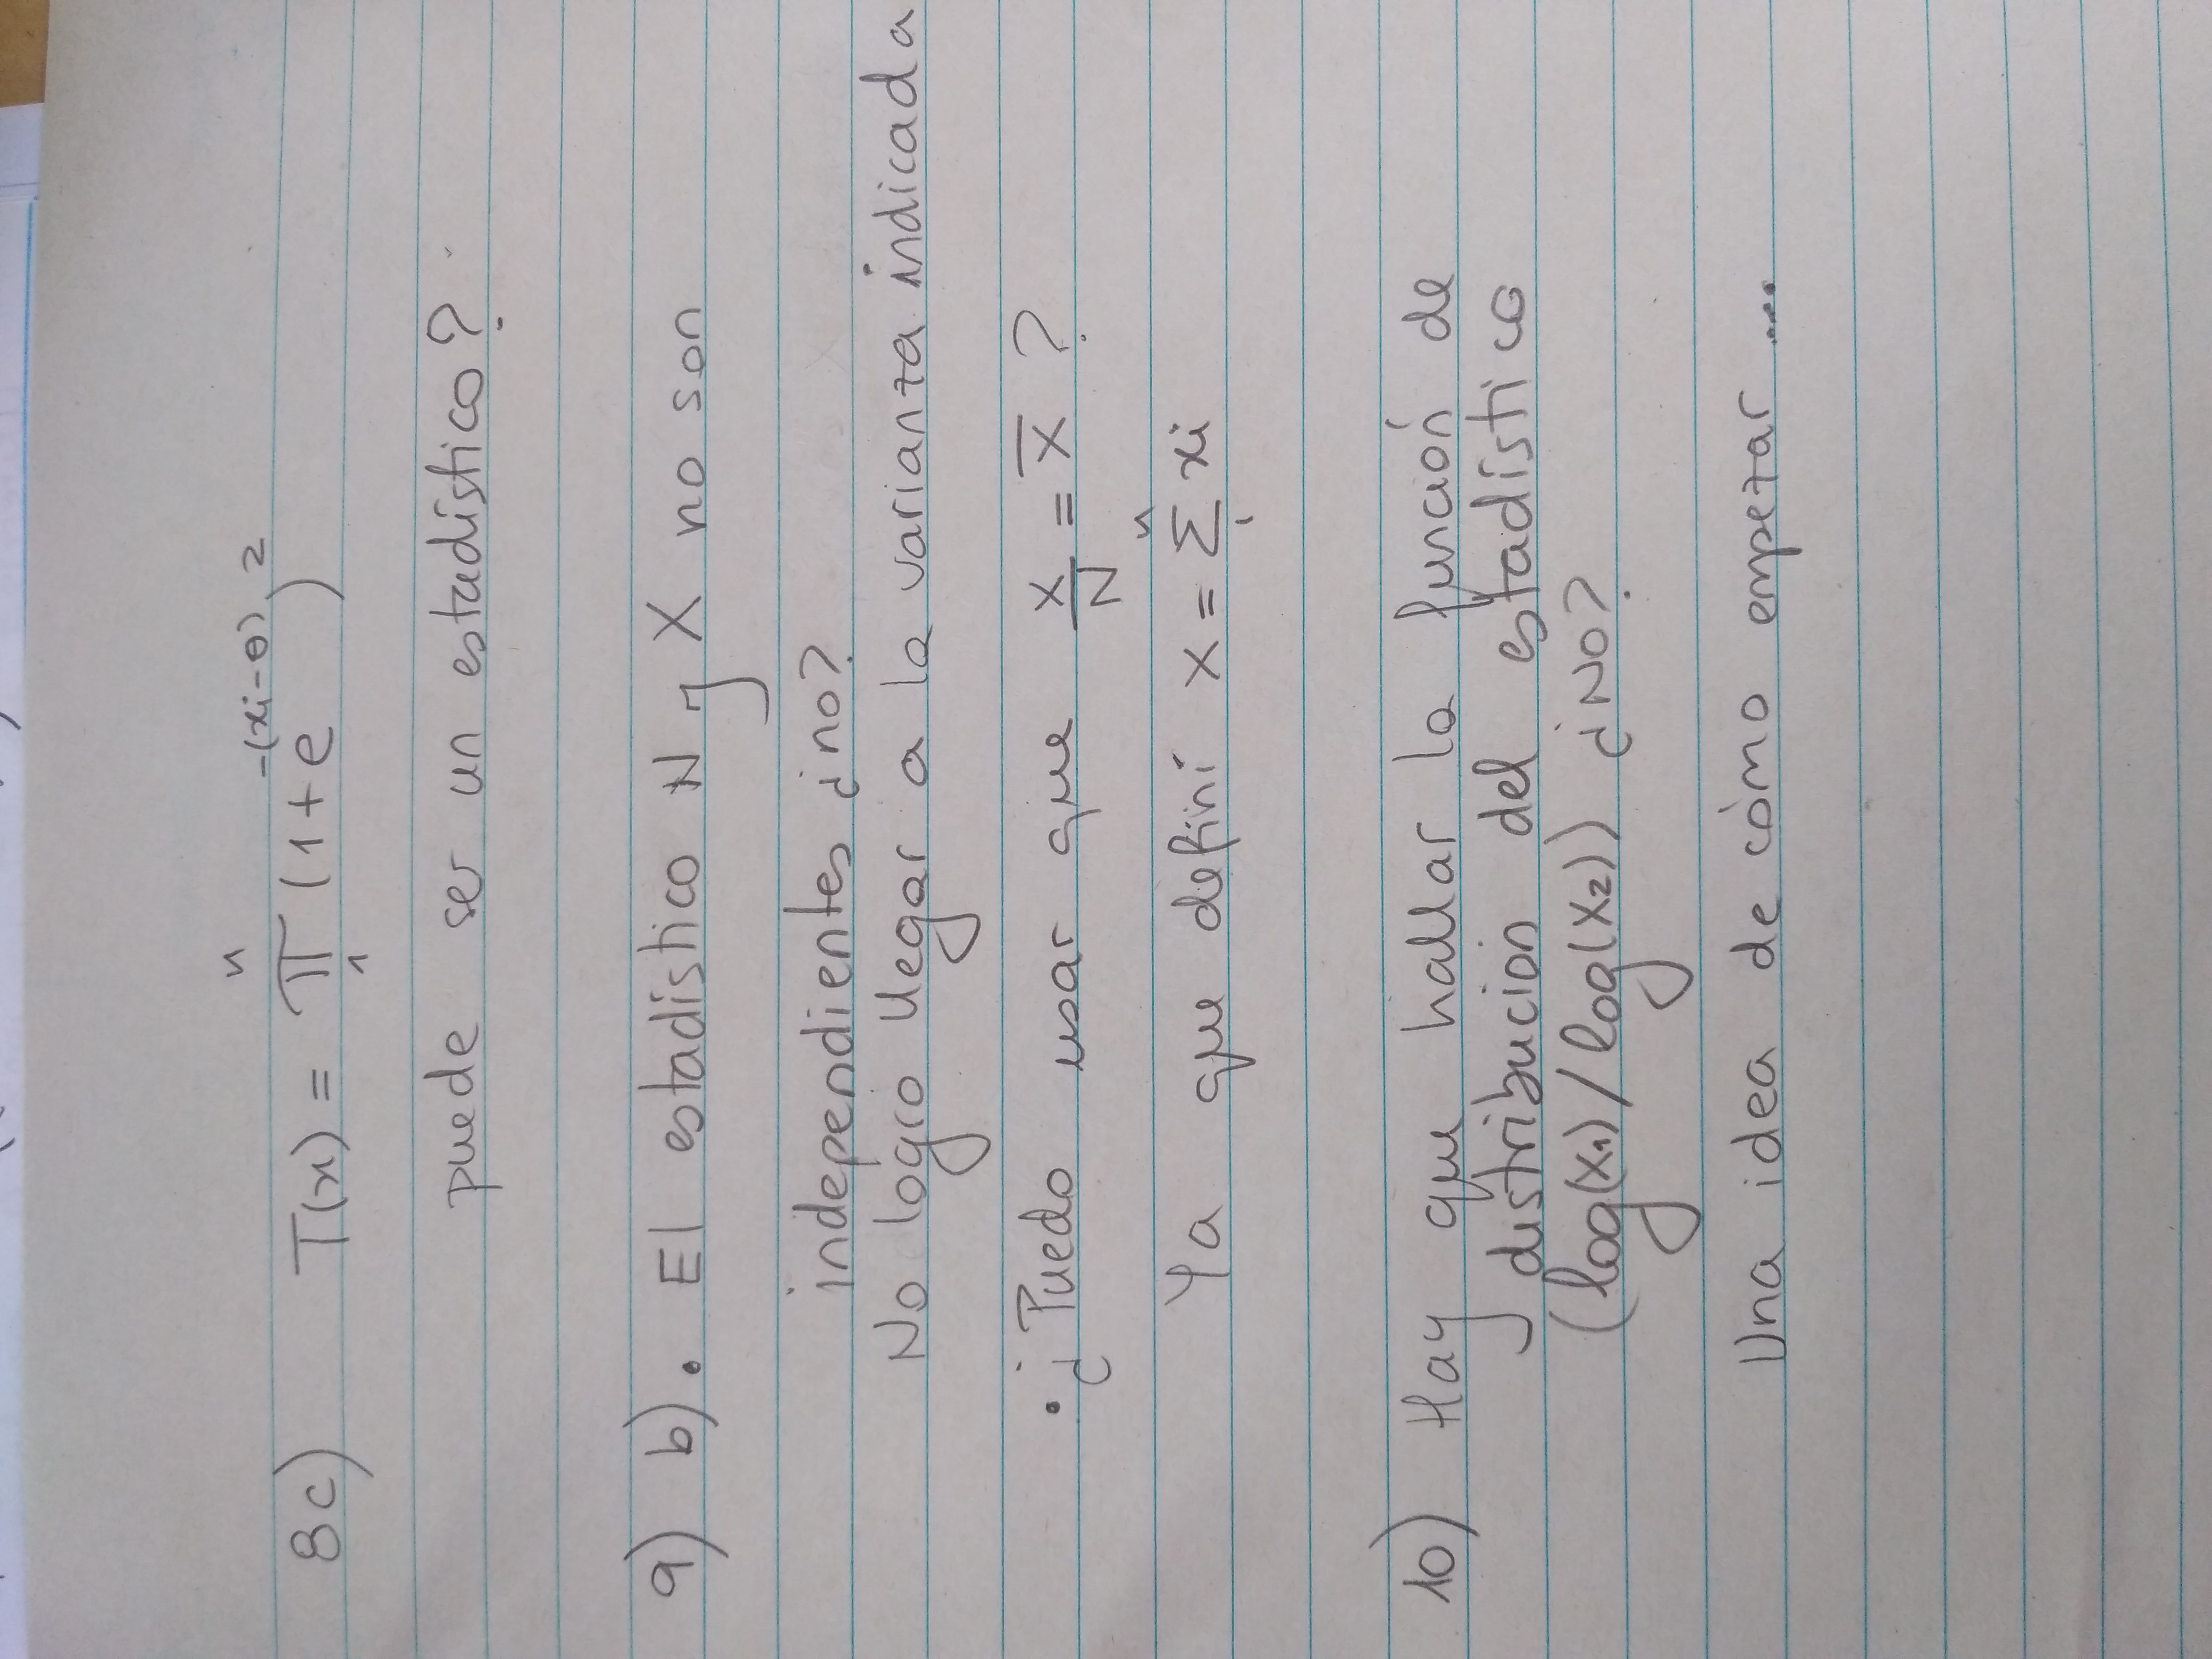 8c) T(x) = ∏₁ⁿ (1+e^-(xi-θ))²
puede ser un estadístico?
9) b). El estadístico N y X no son
independientes ¿no?
No logro llegar a la varianza indicada
• ¿Puedo usar que X/N = X̄ ?
Ya que definí X = Σ₁ⁿ xi
10) Hay que hallar la función de
distribución del estadístico
(log(X₁)/log(X₂)) ¿NO?
Una idea de cómo empezar ...